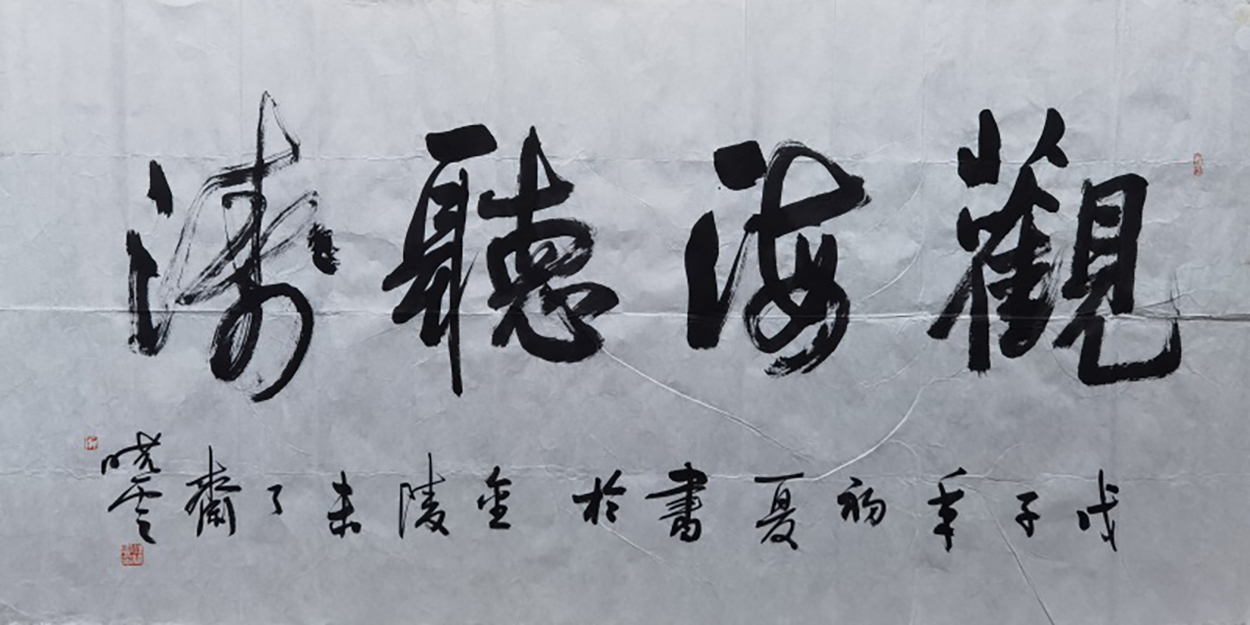 觀海聽濤
戊子年初夏書於金陵未了齋
曉雲